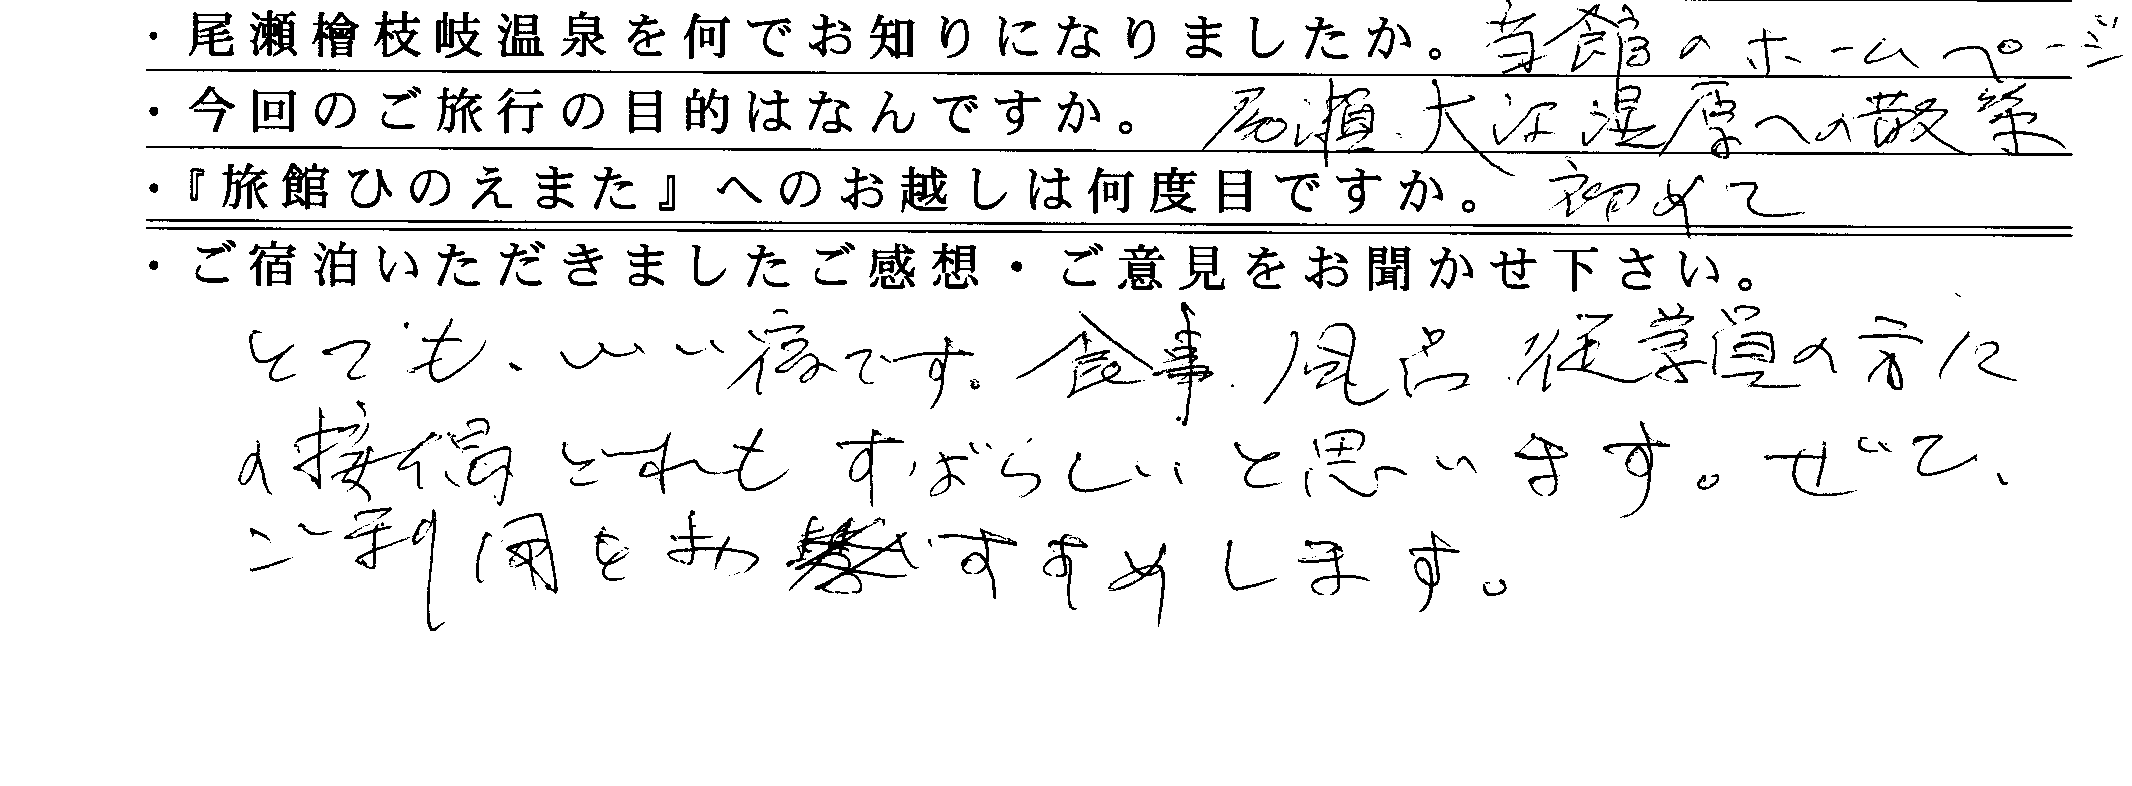 ・尾瀬檜枝岐温泉を何でお知りになりましたか。当館のホームページ
・今回のご旅行の目的はなんですか。尾瀬、大江湿原への散策
・『旅館ひのえまた』へのお越しは何度目ですか。初めて
・ご宿泊いただきましたご感想・ご意見をお聞かせ下さい。
とても、いい宿です。食事、風呂、従業員の方に
の接偶どれもすばらしいと思います。ぜひ、
ご利用をおすすめします。